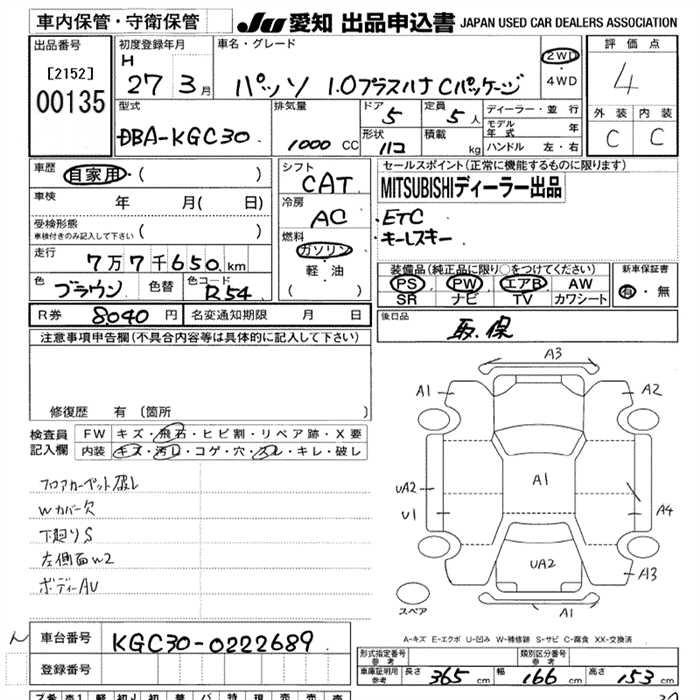 車内保管・守衛保管
JU 愛知 出品申込書 JAPAN USED CAR DEALERS ASSOCIATION
出品番号
[2152]
00135
初度登録年月
H 27 3月
車名・グレード
パッソ 1.0プラスハナCパッケージ
2WD
・
4WD
評価点
4
外装 内装
C C
型式
DBA-KGC30
排気量
1000 CC
ドア 5
形状 HB
定員 5 人
積載 kg
ディーラー・並 行
モデル年式 年
ハンドル 左・右
車歴
自家用・( )
車検
年 月( 日)
受検形態
車検付きのみ記入して下さい ( )
走行
7万7千650 km
色 ブラウン 色替 色コード R54
シフト
CAT
冷房
AC
燃料
ガソリン
・
軽・油
( )
セールスポイント(正常に機能するものに限ります)
MITSUBISHIディーラー出品
・ETC
・キーレスキー
装備品(純正品に限り○をつけてください)
PS PW エアB AW
SR ナビ TV カワシート
新車保証書
有・無
R券 8,040 円 名変通知期限 月 日
後日品
取、保
注意事項申告欄(不具合内容等は具体的に記入して下さい)
修復歴 有 〔箇所 〕
検査員記入欄
FW キズ・飛石・ヒビ割・リペア跡・X要
内装 キズ・汚レ・コゲ・穴・スレ・キレ・破レ
フロアカーペット破レ
Wカバー欠
下廻りS
左側面W2
ボディーAU
A3
A1 A2
A1
UA2
U1 A4
UA2 A3
A1
スペア
A-キズ E-エクボ U-凹み W-補修跡 S-サビ C-腐食 XX-交換済
車台番号 KGC30-0222689
登録番号
形式指定番号 参考 類別区分番号 参考
車庫証明用 参考 長さ 365 cm 幅 166 cm 高さ 153 cm